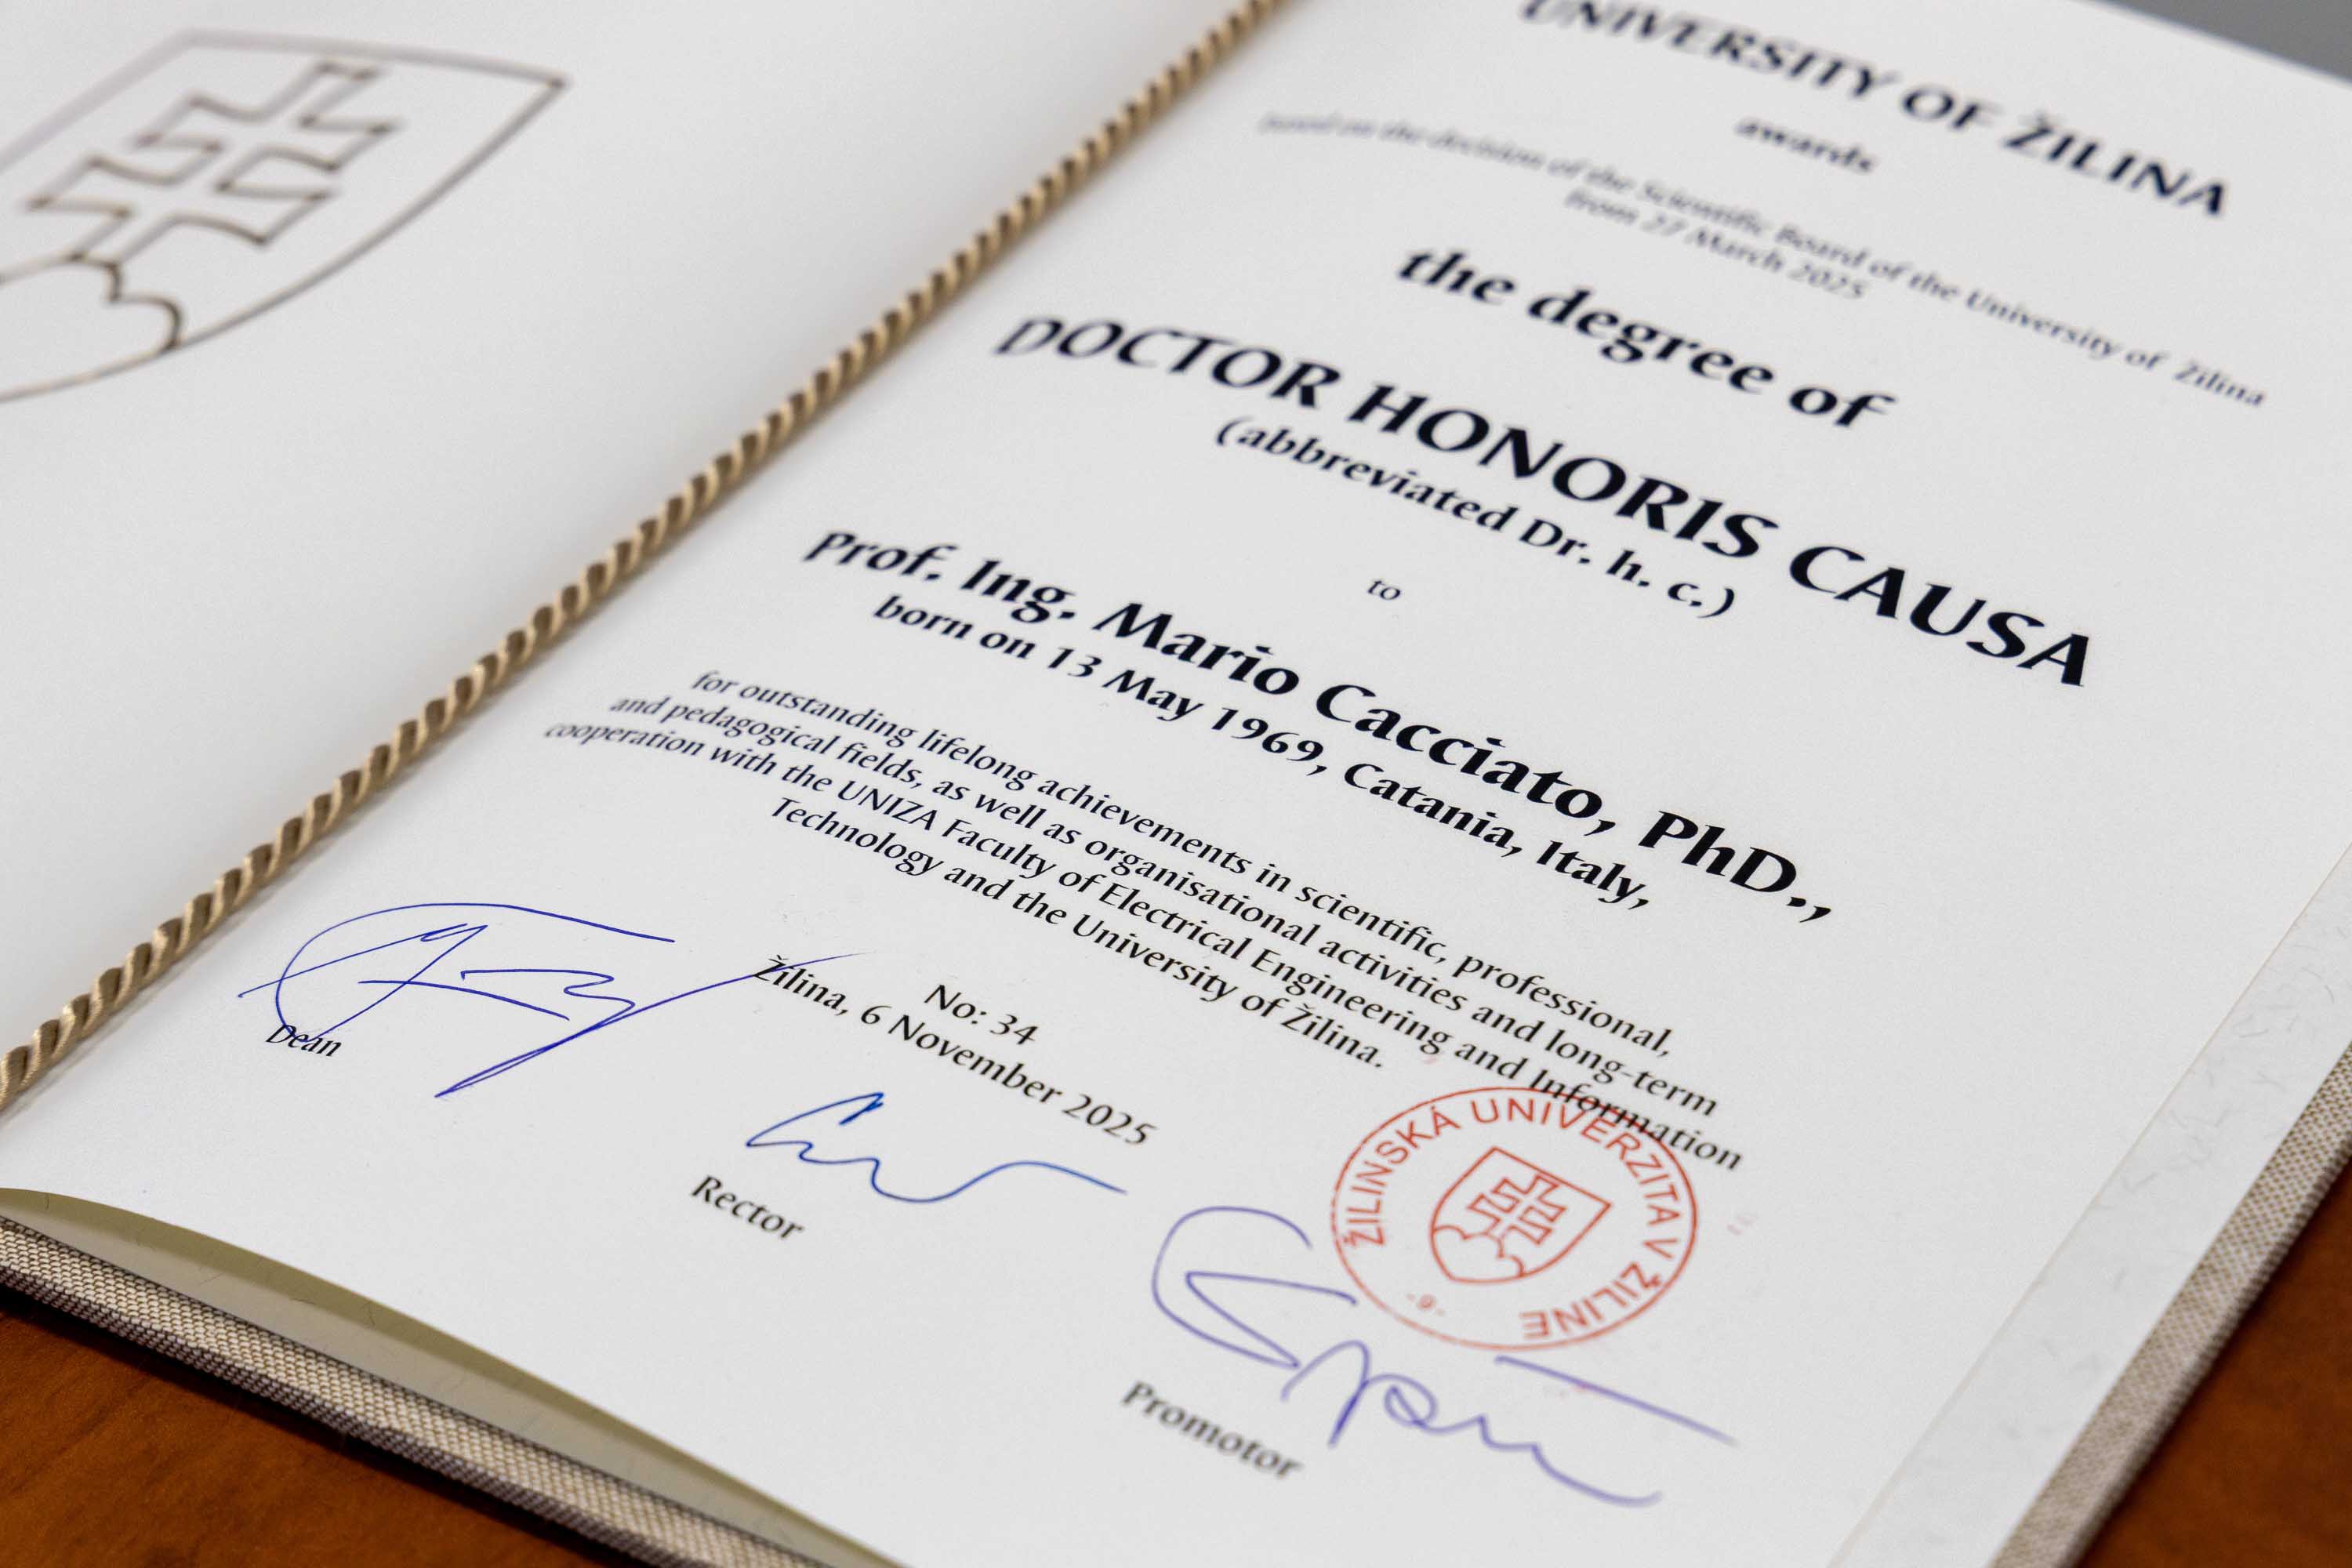 UNIVERSITY OF ŽILINA
awards
based on the decision of the Scientific Board of the University of Žilina
from 27 March 2025
the degree of
DOCTOR HONORIS CAUSA
(abbreviated Dr. h. c.)
to
Prof. Ing. Mario Cacciato, PhD.,
born on 13 May 1969, Catania, Italy,
for outstanding lifelong achievements in scientific, professional,
and pedagogical fields, as well as organisational activities and long-term
cooperation with the UNIZA Faculty of Electrical Engineering and Information
Technology and the University of Žilina.
No: 34
Žilina, 6 November 2025
Dean
Rector
Promotor
ŽILINSKÁ UNIVERZITA V ŽILINE
-9-